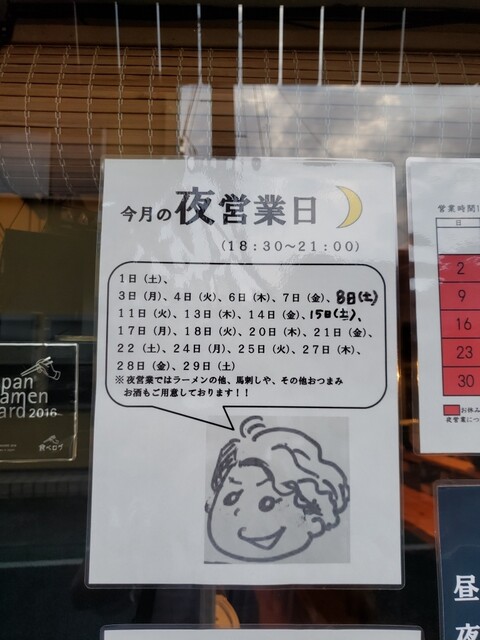 今月の夜営業日
(18:30～21:00)
1日(土)、
3日(月)、4日(火)、6日(木)、7日(金)、8日(土)
11日(火)、13日(木)、14日(金)、15日(土)、
17日(月)、18日(火)、20日(木)、21日(金)、
22(土)、24日(月)、25日(火)、27日(木)、
28日(金)、29日(土)
※夜営業ではラーメンの他、馬刺しや、その他おつまみ
お酒もご用意しております！！
営業時間1
日
2
9
16
23
30
お休み
夜営業につ
pan
amen
ard 2016
食べログ
昼
夜